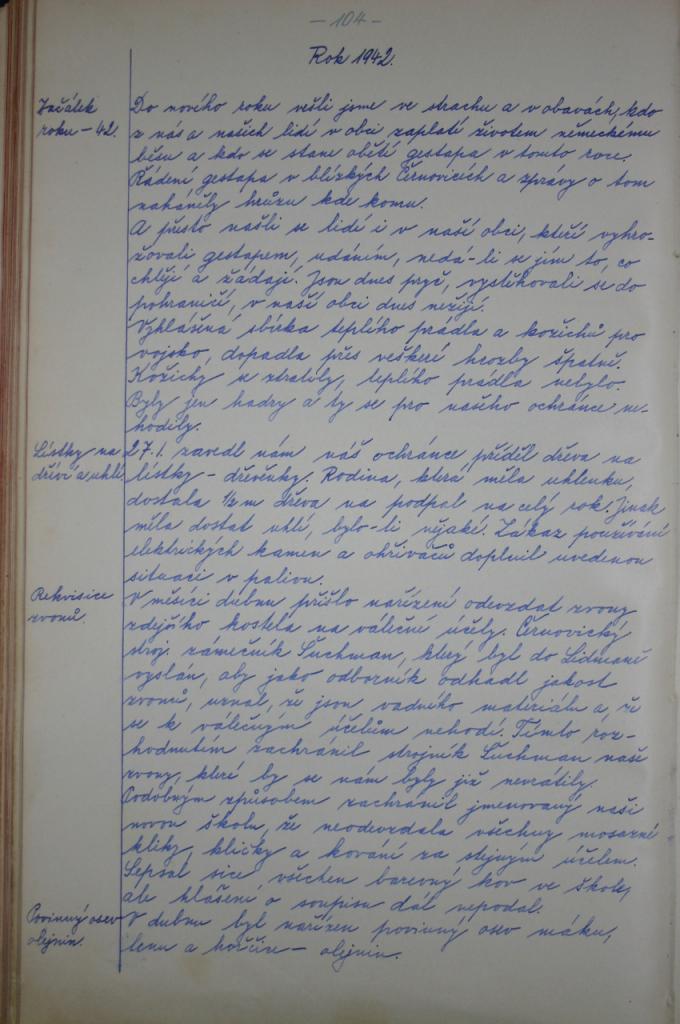 - 104 -
Rok 1942.
Začátek
roku - 42.
Do nového roku vešli jsme ve strachu a v obavách, kdo
z nás a našich lidí v obci zaplatí životem německému
běsu a kdo se stane obětí gestapa v tomto roce.
Řádení gestapa v blízkých Černovicích a zprávy o tom
naháněly hrůzu kde komu.
A přesto našli se lidé i v naší obci, kteří vyhro-
žovali gestapem, udáním, nedá-li se jim to, co
chtějí a žádají. Jsou dnes pryč, vystěhovali se do
pohraničí, v naší obci dnes nežijí.
Vyhlášená sbírka teplého prádla a kožichů pro
vojsko, dopadla přes veškeré hrozby špatně.
Kožichy se ztratily, teplého prádla nebylo.
Byly jen hadry a ty se pro našeho ochránce ne-
hodily.
Lístky na
dříví a uhlí.
27./1. zavedl nám náš ochránce příděl dřeva na
lístky - dřevěnky. Rodina, která měla uhlenku,
dostala 1/2 m dřeva na podpal na celý rok. Jinak
měla dostat uhlí, bylo-li nějaké. Zákaz používání
elektrických kamen a ohřívačů doplnil uvedenou
situaci v palivu.
Rekvisice
zvonů.
V měsíci dubnu přišlo nařízení odevzdat zvony
zdejšího kostela na válečné účely. Černovický
stroj. zámečník Šuchman, který byl do Lidmaně
vyslán, aby jako odborník odhadl jakost
zvonů, uznal, že jsou vadného materiálu a, že
se k válečným účelům nehodí. Tímto roz-
hodnutím zachránil strojník Šuchman naše
zvony, které by se nám byly již nevrátily.
Podobným způsobem zachránil jmenovaný naši
novou školu, že neodevzdala všechny mosazné
kliky, kličky a kování za stejným účelem.
Sepsal sice všechen barevný kov ve škole,
ale hlášení o soupisu dál nepodal.
Povinný osev
olejnin.
V dubnu byl nařízen povinný osev máku,
lenu a hořčice - olejnin.